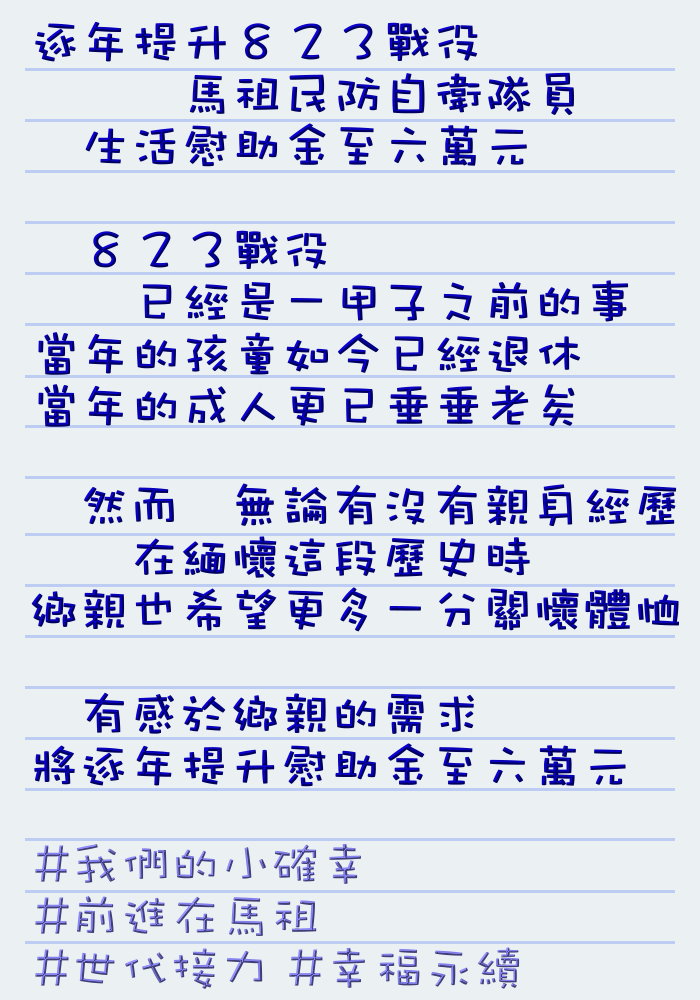 逐年提升823戰役
馬祖民防自衛隊員
生活慰助金至六萬元
823戰役
已經是一甲子之前的事
當年的孩童如今已經退休
當年的成人更已垂垂老矣
然而　無論有沒有親身經歷
在緬懷這段歷史時
鄉親也希望更多一分關懷體恤
有感於鄉親的需求
將逐年提升慰助金至六萬元
#我們的小確幸
#前進在馬祖
#世代接力 #幸福永續